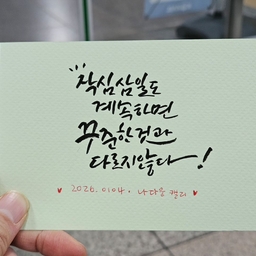 작심삼일도
계속하면
꾸준한것과
다르지않다~!
♥ 2026.01.04. 나다움 캘리 ♥